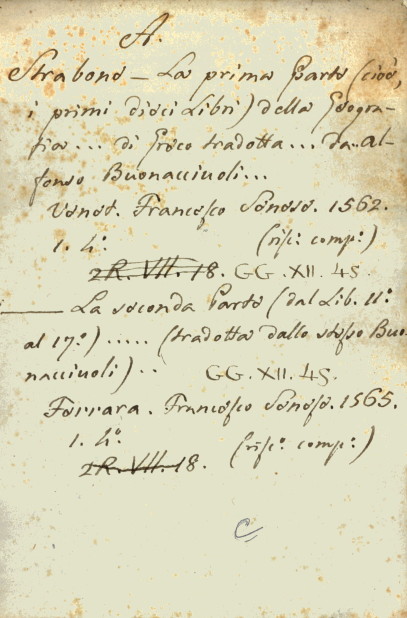 A.
Strabone — La prima Parte (cioè,
i primi dieci Libri) della Geogra-
fia ... di Greco tradotta ... da Al-
fonso Buonacciuoli ...
Venet. Francesco Senese. 1562.
1. 4.º (risc.º comp.º)
2R. VII. 18. GG. XII. 45.
—— La seconda Parte (dal Lib. 11º
al 17.º) ..... (tradotta dallo stesso Buo-
nacciuoli) .. GG. XII. 45.
Ferrara. Francesco Senese. 1565.
1. 4.º (risc.º comp.º)
2R. VII. 18.
C